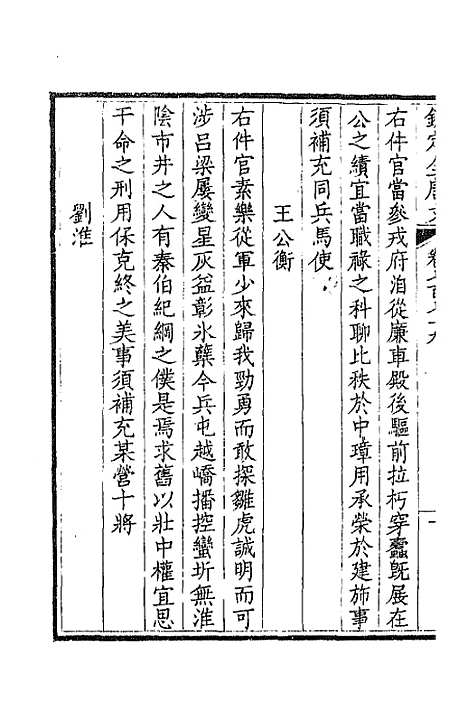 右件官當參戎府洎從廉車殿後驅前拉朽穿蠹既展在
公之績宜當職祿之科聊比秩於中璋用承榮於建斾事
須補充同兵馬使
王公衡
右件官素樂從軍少來歸我勁勇而敢探雛虎誠明而可
涉呂梁屢變星灰益彰氷蘖今兵屯越嶠播控蠻圻無淮
陰市井之人有秦伯紀綱之僕是焉求舊以壯中權宜思
干命之刑用保克終之美事須補充某營十將
劉淮